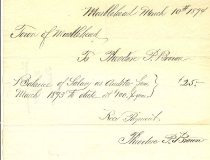 Marblehead March 10th 1894
Town of Marblehead
To Theodore P. Brown
To Balance of Salary as Auditor from
March 1893 to date at 100 pr year } $25
Rec'd Payment
Theodore P. Brown